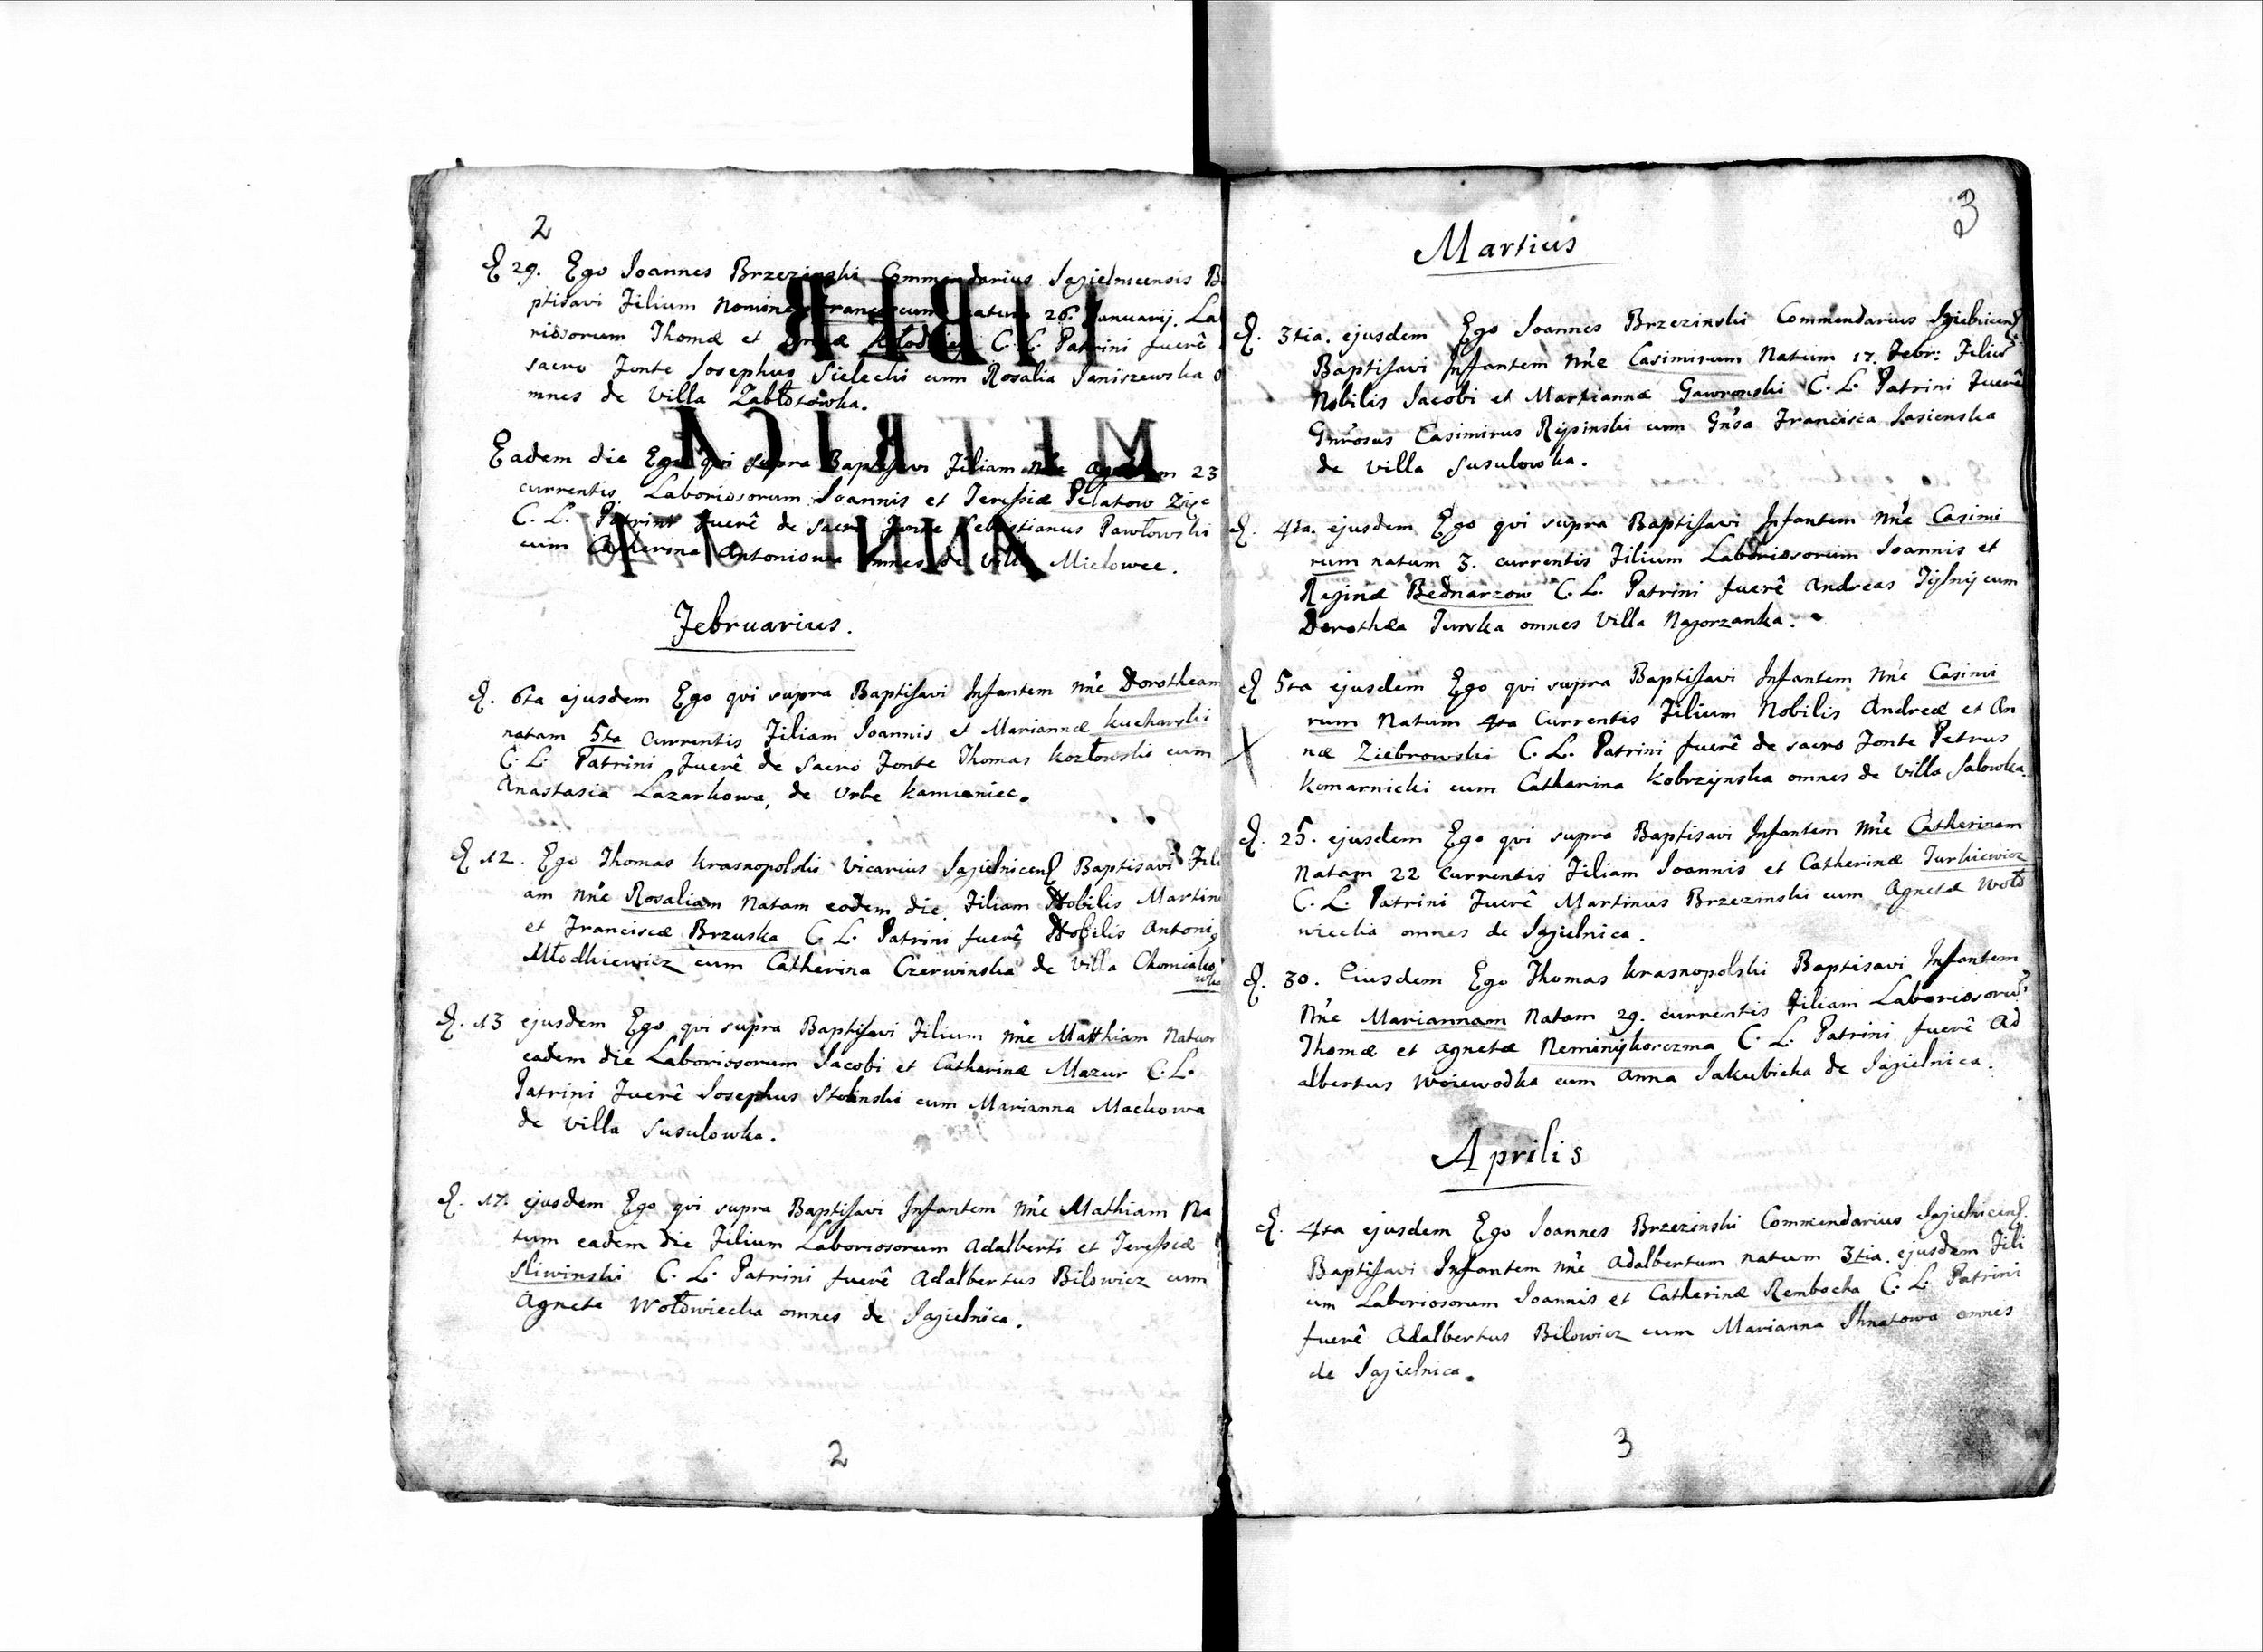 2
D 29. Ego Joannes Brzezinski Commendarius Jagielnicensis Ba
ptisavi Filium Nomine Franciscum natum 26. Januarij. Lab
riosorum Thomæ et C. L. Patrini fuerê
sacro Fonte Josephus Sielecki cum Rosalia Janiszewska o
mnes de Villa Zabłotowka.
Eadem die Ego qui supra Baptisavi Filiam nne 23
currentis, Laboriosorum Joannis et Teressiæ Pelatow
C. L. Patrini fuerê de sacro Fonte Sebastianus Pawłowski
cum Catherina Antoniowa omnes de Villa Milowce.
Februarius.
D. 6ta ejusdem Ego qui supra Baptisavi Infantem nne Dorotheam
natam 5ta Currentis Filiam Joannis et Mariannæ Kucharski
C. L. Patrini Fuerê de Sacro Fonte Thomas Kozłowski cum
Anastasia Lazarkowa, de Urbe Kamieniec.
D 12. Ego Thomas Krasnopolski Vicarius Jagielnicens Baptisavi Fili
am Nne Rosaliam Natam eodem die Filiam Nobilis Martini
et Franciscæ Brzuska C. L. Patrini fuerê Nobilis Antoni9
Młodkiewicz cum Catherina Czerwinska de Villa Chomiako
wka
D. 13 ejusdem Ego qui supra Baptisavi Filium nne Matthiam Natum
eadem die Laboriosorum Jacobi et Catharinæ Mazur C. L.
Patrini Fuerê Josephus Stolinski cum Marianna Mackowa
de Villa Susulowka.
D. 17. ejusdem Ego qui supra Baptisavi Infantem nne Mathiam Na
tum eadem die Filium Laboriosorum Adalberti et Teressiæ
Sliwinski C. L. Patrini fuerê Adalbertus Bilowicz cum
Agnete Wołowiecka omnes de Jagielnica.
2
3
Martius
D. 3tia. ejusdem Ego Joannes Brzezinski Commendarius Jgielnicens
Baptisavi Infantem Nne Casimirum Natum 17. Febr: Filiu
Nobilis Jacobi et Martiannæ Gawronski C. L. Patrini Fuerê
Gnrosus Casimirus Rypinski cum Gnsa Francisca Jasienska
de Villa Susulowka.
D. 4ta. ejusdem Ego qui supra Baptisavi Infantem Nne Casimi
rum natum 3. currentis Filium Laboriosorum Joannis et
Reginæ Bednarzow C. L. Patrini fuerê Andreas cum
Dorothea Turska omnes Villa Nagorzanka.
D 5ta ejusdem Ego qui supra Baptisavi Infantem Nne Casimi
rum Natum 4ta Currentis Filium Nobilis Andreæ et An
næ Ziebrowski C. L. Patrini fuerê de sacro Fonte Petrus
Komarnicki cum Catharina Kobrzynska omnes de Villa Salowka.
D. 25. ejusdem Ego qui supra Baptisavi Infantem Nne Catherinam
Natam 22 Currentis Filiam Joannis et Catherinæ Turkiewicz
C. L. Patrini Fuerê Martinus Brzezinski cum Agneta Woło
wiecka omnes de Jagielnica.
D. 30. Eiusdem Ego Thomas Krasnopolski Baptisavi Infantem
Nne Mariannam Natam 29. currentis Filiam Laboriosoru
Thomæ et Agnetæ Neminijkorczma C. L. Patrini fuerê Ad
albertus Woiewodka cum Anna Jakubicka de Jagielnica.
Aprilis
D. 4ta ejusdem Ego Joannes Brzezinski Commendarius Jagielnicens.
Baptisavi Infantem Nne Adalbertum natum 3tia. ejusdem Fili
um Laboriosorum Joannis et Catherinæ Rembocha C. L. Patrini
fuerê Adalbertus Bilowicz cum Marianna Ihnatowa omnes
de Jagielnica.
3